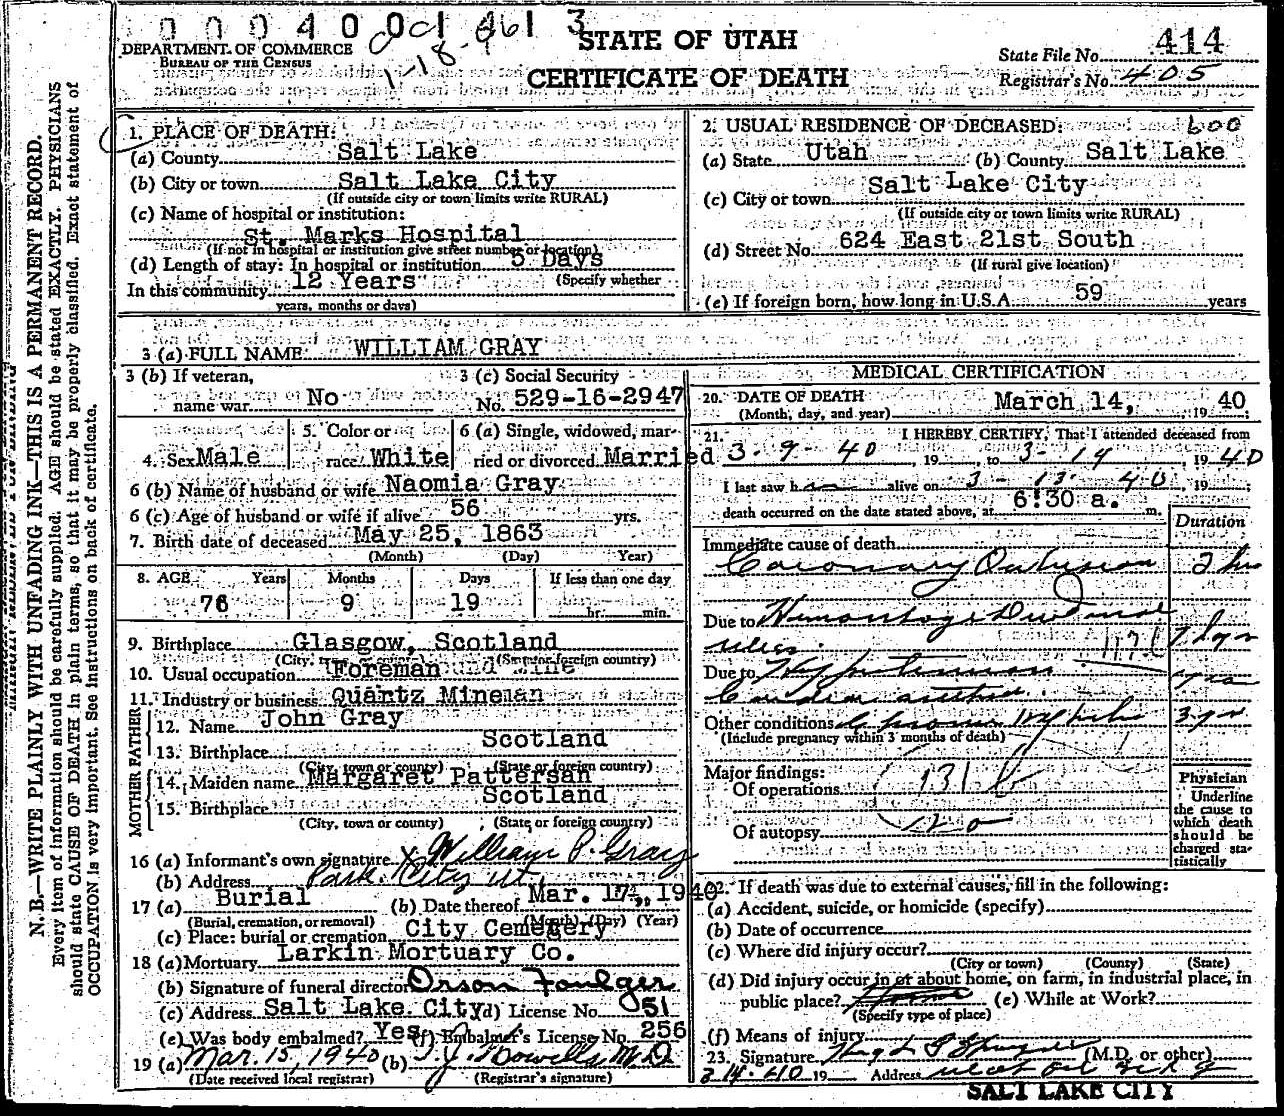 0 0 0 4 0 0 1 461 3
1-18-9
DEPARTMENT OF COMMERCE
BUREAU OF THE CENSUS
STATE OF UTAH
CERTIFICATE OF DEATH
State File No. 414
Registrar's No. 405
N. B.—WRITE PLAINLY WITH UNFADING INK—THIS IS A PERMANENT RECORD.
Every item of information should be carefully supplied. AGE should be stated EXACTLY. PHYSICIANS
should state CAUSE OF DEATH in plain terms, so that it may be properly classified. Exact statement of
OCCUPATION is very important. See instructions on back of certificate.
1. PLACE OF DEATH:
(a) County Salt Lake
(b) City or town Salt Lake City
(If outside city or town limits write RURAL)
(c) Name of hospital or institution:
St. Marks Hospital
(If not in hospital or institution give street number or location)
(d) Length of stay: In hospital or institution 5 Days
(Specify whether
In this community 12 Years
years, months or days)
2. USUAL RESIDENCE OF DECEASED: 600
(a) State Utah (b) County Salt Lake
(c) City or town Salt Lake City
(If outside city or town limits write RURAL)
(d) Street No. 624 East 21st South
(If rural give location)
(e) If foreign born, how long in U.S.A. 59 years
3 (a) FULL NAME WILLIAM GRAY
3 (b) If veteran,
name war No
3 (c) Social Security
No. 529-16-2947
4. Sex Male
5. Color or
race White
6 (a) Single, widowed, mar-
ried or divorced Married
6 (b) Name of husband or wife Naomia Gray
6 (c) Age of husband or wife if alive 56 yrs.
7. Birth date of deceased May 25, 1863
(Month) (Day) Year)
8. AGE Years Months Days If less than one day
76 9 19 hr. min.
9. Birthplace Glasgow, Scotland
(City, town or county) (State or foreign country)
10. Usual occupation Foreman
11. Industry or business Quartz Mineman
FATHER
12. Name John Gray
13. Birthplace Scotland
(City, town or county) (State or foreign country)
MOTHER
14. Maiden name Margaret Pattersan
15. Birthplace Scotland
(City, town or county) (State or foreign country)
16 (a) Informant's own signature X William P. Gray
(b) Address Park City Ut.
17 (a) Burial (b) Date thereof Mar. 17, 1940
(Burial, cremation, or removal) (Month) (Day) (Year)
(c) Place: burial or cremation City Cemetery
18 (a) Mortuary Larkin Mortuary Co.
(b) Signature of funeral director Orson Foulger
(c) Address Salt Lake City (d) License No. 51
(e) Was body embalmed? Yes (f) Embalmer's License No. 256
19 (a) Mar. 15, 1940 (b) T. J. Howells M. D.
(Date received local registrar) (Registrar's signature)
MEDICAL CERTIFICATION
20. DATE OF DEATH
(Month, day, and year) March 14, 19 40
21. I HEREBY CERTIFY, That I attended deceased from
3-9-40, 19 to 3-14, 19 40
I last saw h alive on 3-13-40, 19 ;
death occurred on the date stated above, at 6:30 a. m.
Duration
Immediate cause of death
Coronary Occlusion 2 hrs
Due to Hemorrhage Duodenal
ulcer 117a 7 days
Due to Hypertension
Other conditions Chronic 3 yrs
(Include pregnancy within 3 months of death)
Major findings:
Of operations 131
Of autopsy
Physician
Underline
the cause to
which death
should be
charged sta-
tistically
22. If death was due to external causes, fill in the following:
(a) Accident, suicide, or homicide (specify)
(b) Date of occurrence
(c) Where did injury occur?
(City or town) (County) (State)
(d) Did injury occur in or about home, on farm, in industrial place, in
public place? (e) While at Work?
(Specify type of place)
(f) Means of injury
23. Signature (M.D. or other)
3-14-40 19 Address
SALT LAKE CITY